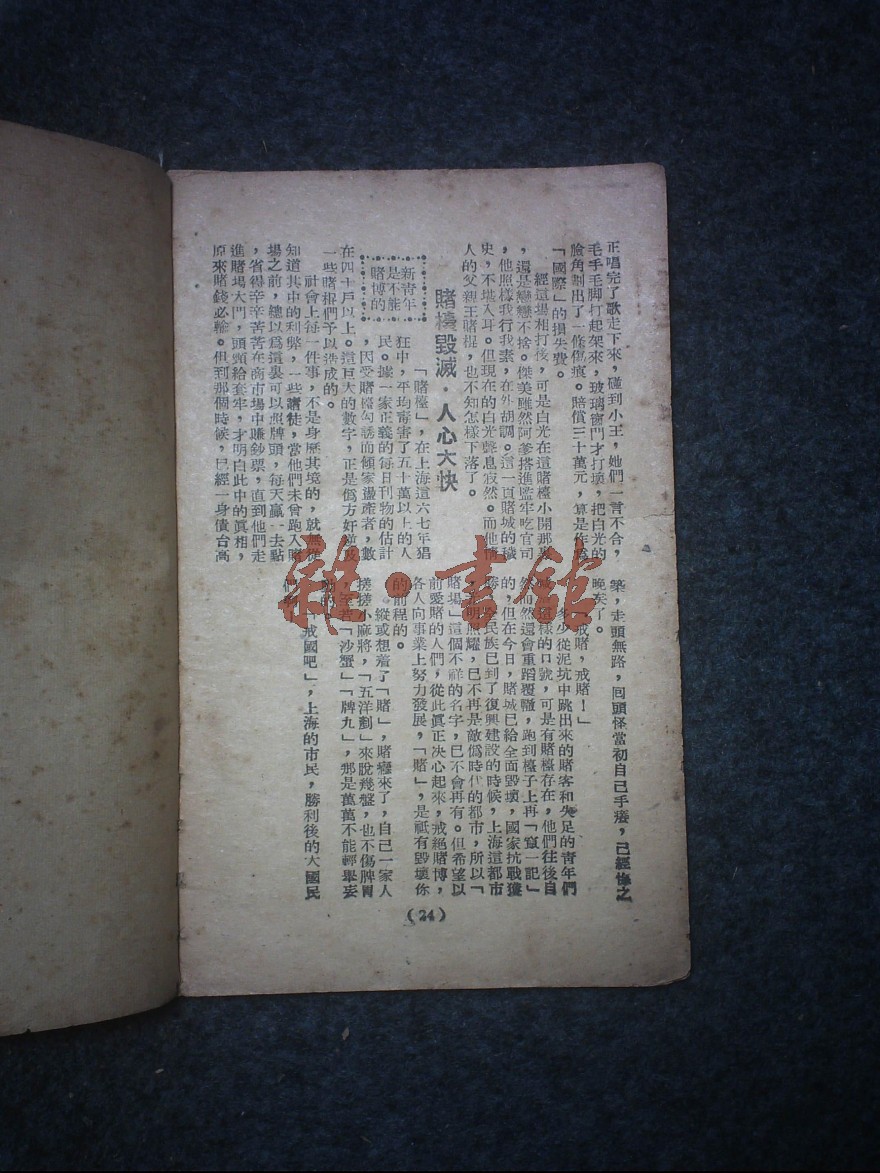 正唱完了歌走下來，碰到小王，她們一言不合，
毛手毛脚打起架來，玻璃窗門才打壞，把白光的
臉角劃出了一條傷痕。賠償三十萬元，算是作爲
「國際」的損失費。
經這場相打後，可是白光在這賭檯小開那裏
，還是戀戀不捨。傑美雖然阿爹搭進監牢吃官司
，他照樣我行我素，在外胡調。這一頁賭城的穢
史，不堪入耳。但現在的白光聲息寂然。而他情
人的父親王賭棍，也不知怎樣下落了。
賭檯毀滅・人心大快
新靑年
是不能
賭博的
「賭檯」，在上海這六七年猖
狂中，平均毒害了五十萬以上的人
民。據一家正義的每日刊物的估計
，因受賭檯勾誘而傾家盪產者，數
在四十戶以上。這巨大的數字，正是僞方奸逆及
一些賭棍們予以造成的。
社會上每一件事，不是身歷其境的，就無從
知道其中的利弊，一些賭徒，當他們未曾跑入賭
場之前，總以爲這裏可以照牌頭，每天贏一去點
，省得辛辛苦苦在商市場中賺鈔票，直到他們走
進賭場大門，頭頸給套牢，才明白此中的眞相，
原來賭錢必輸。但到那個時候，已經一身債台高
築，走頭無路，囘頭怪當初自己手癢，已經悔之
晚矣了。
「戒賭，戒賭！」
多少從泥坑中跳出來的賭客和失足的青年們
這樣的口號，可是有賭檯存在，他們往後自
然而然還會重蹈覆轍，跑到檯子上再「竄一記」
的，但在今日，賭城已給全面毀壞，國家抗戰獲
勝，全民族已到了復興建設的時候，上海這都市
光明照耀，已不再是敵僞時代的都市，所以「
賭場」這個不祥的名字，已不會再有。但希望以
前愛賭的人們，從此眞正决心起來，戒絕賭博，
各人向事業上努力發展，「賭」，是祇有毀壞你
的前程的。
縱或想着了「賭」，賭癮來了，自己一家人
搓搓小麻將，「五洋劃」來脫幾盤，也不傷脾胃
，至若「沙蟹」「牌九」，那是萬萬不能輕舉妄
動的。
「戒國吧」，上海的市民，勝利後的大國民
們
（24）
雜·書館